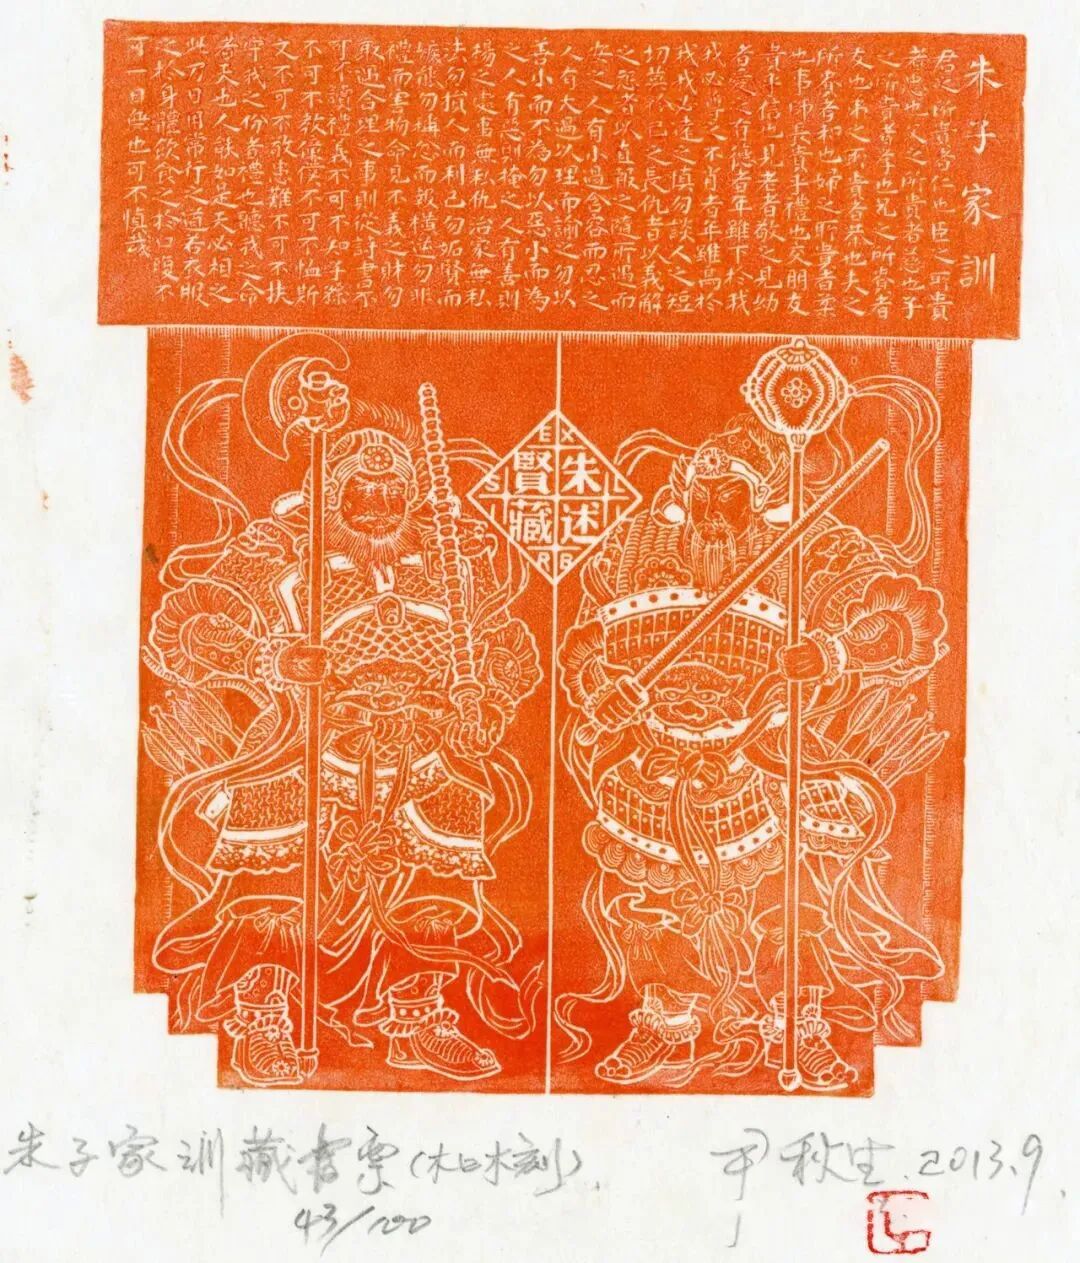 朱子家訓
君之所貴者仁也臣之所貴
者忠也父之所貴者慈也子
之所貴者孝也兄之所貴者
友也弟之所貴者恭也夫之
所貴者和也婦之所貴者柔
也事師長貴乎禮也交朋友
貴乎信也見老者敬之見幼
者愛之有德者年雖下於我
我必尊之不肖者年雖高於
我我必遠之慎勿談人之短
切莫矜己之長仇者以義解
之怨者以直報之隨所遇而
安之人有小過含容而忍之
人有大過以理而諭之勿以
善小而不為勿以惡小而為
之人有惡則掩之人有善則
揚之處事無私仇治家無私
法勿損人而利己勿妬賢而
嫉能勿稱忿而報橫逆勿非
禮而害物命見不義之財勿
取遇合理之事則從詩書不
可不讀禮義不可不知子孫
不可不教僮僕不可不恤斯
文不可不敬患難不可不扶
守我之份者禮也聽我之命
者天也人能如是天必相之
此乃日用常行之道若衣服
之於身體飲食之於口腹不
可一日無也可不慎哉
EX
LIBRIS
朱述
賢藏
朱子家训藏书票(木口木刻)
43/100
尹秋生.2013.9.